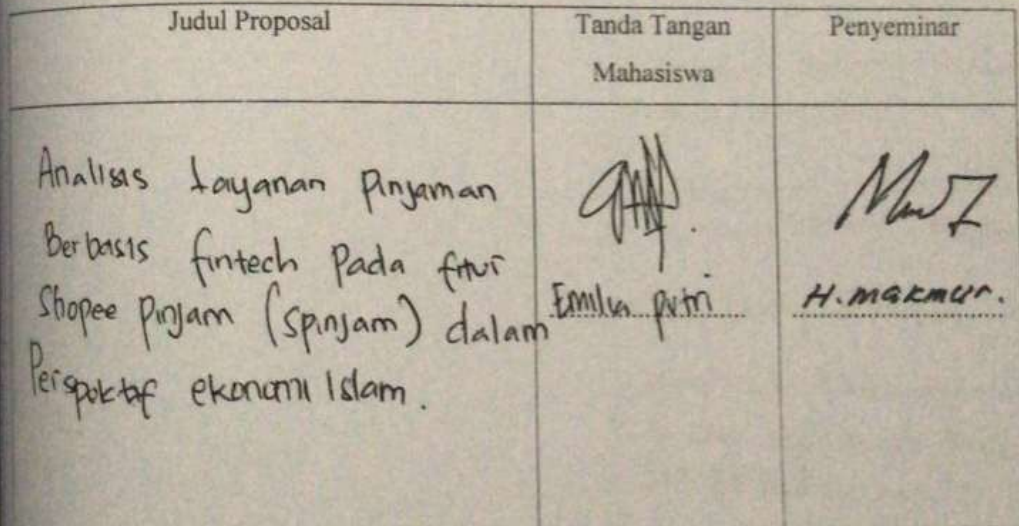 Judul Proposal
Tanda Tangan
Mahasiswa
Penyeminar
Analisis Layanan Pinjaman
Berbasis fintech Pada fitur
Shopee Pinjam (Spinjam) dalam
Perspektif ekonomi Islam.
Emilia putri
H. makmur.